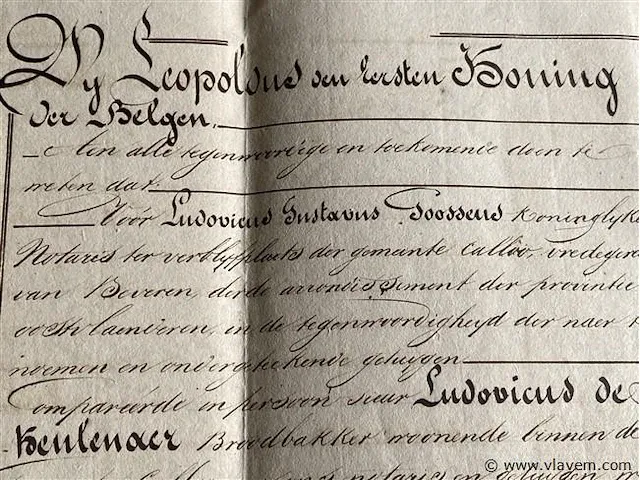 Wy Leopoldus den Eersten Koning
der Belgen,
Een alle tegenwoordige en toekomende doen te
weten dat
Voor Ludovicus Gustavus Goossens Koninglyke
Notaris ter verblyfplaets der gemeente Calloo, vredegere
van Beveren, derde arrondissement der provintie
oost vlaenderen, en in de tegenwoordigheyd der naer t
noemen en ondergeteekende getuygen
Compareerde in persoon sieur Ludovicus de
Keulenaer Broodbakker woonende binnen de
notaris en getuygen
© www.vlavem.com